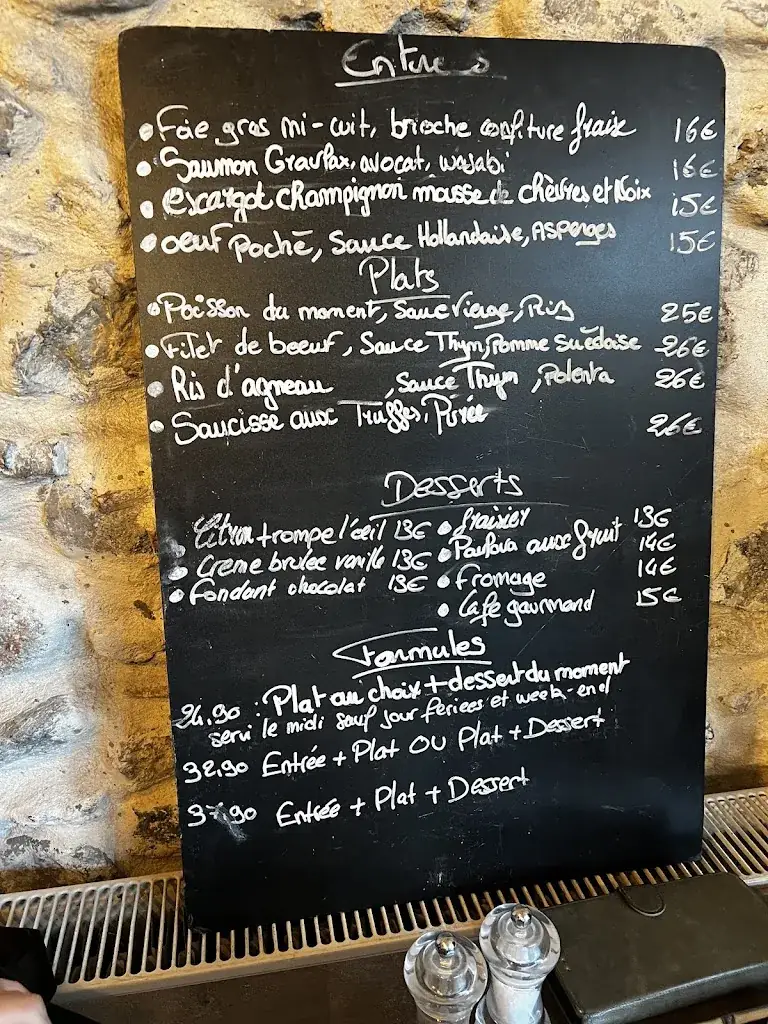 Entrées
Foie gras mi-cuit, brioche confiture fraise 16€
Saumon Gravlax, avocat, wasabi 16€
escargot champignon mousse de chèvres et Noix 15€
oeuf Poché, Sauce Hollandaise, Asperges 15€
Plats
Poisson du moment, Sauce Vierge, Riz 25€
Filet de boeuf, Sauce Thym, Pomme suédoise 26€
Ris d'agneau, Sauce Thym, Polenta 26€
Saucisse aux Truffes, Purée 26€
Desserts
Citron trompe l'œil 13€
Creme brulée vanille 13€
Fondant chocolat 13€
fraisier 13€
Pavlova aux fruit 14€
fromage 14€
Café gourmand 15€
Formules
24.90 : Plat au choix + dessert du moment
servi le midi sauf jour feriees et week-end
32.90 Entrée + Plat OU Plat + Dessert
37.90 Entrée + Plat + Dessert